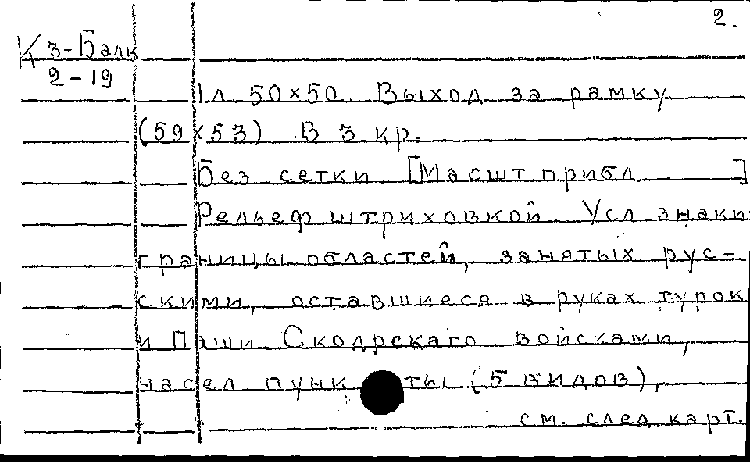 2.
К 3-Балк
2-19
1л 50×50. Выход за рамку
(59×53) В 3 кр.
Без сетки [Масшт прибл ]
Рельеф штриховкой Усл знаки
границы областей, занятых рус-
скими, оставшиеся в руках турок
и Паши Скодрскаго войсками,
насел пунк ты (5 видов),
см. след карт.